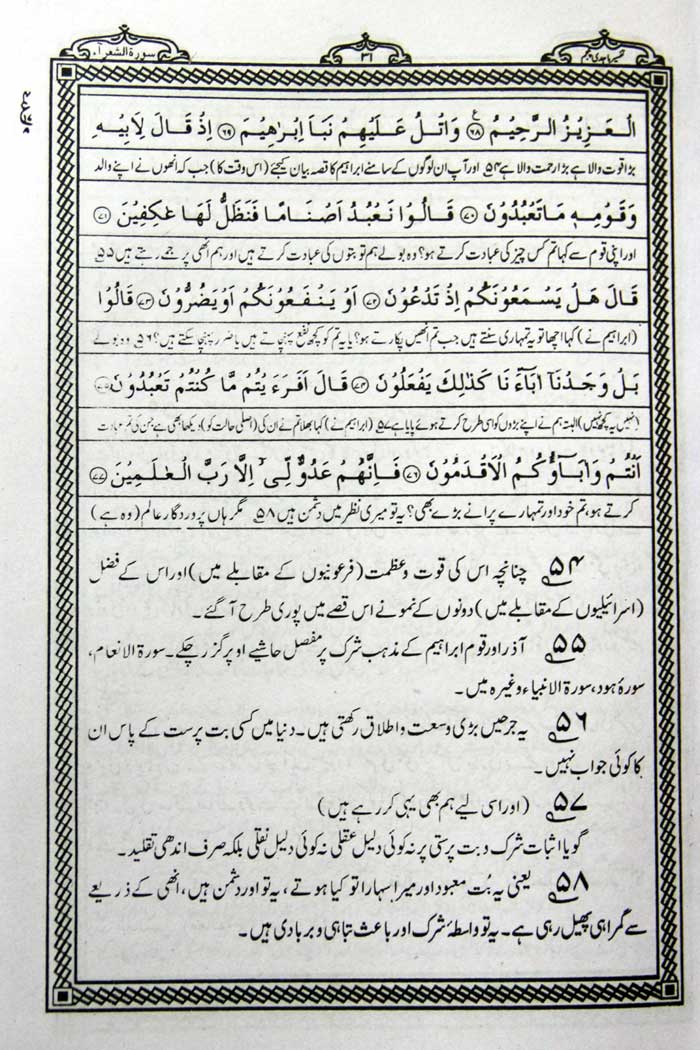 سورة الشعرآء
۳۱
تفسیر ماجدی پنجم
الْعَزِیْزُ الرَّحِیْمُ ﴿۶۸﴾ وَاتْلُ عَلَیْهِمْ نَبَاَ اِبْرٰهِیْمَ ﴿۶۹﴾ اِذْ قَالَ لِاَبِیْهِ
بڑا قوت والا ہے بڑا رحمت والا ہے ۵۴ اور آپ ان لوگوں کے سامنے ابراہیم کا قصہ بیان کیجئے (اس وقت کا) جب کہ انھوں نے اپنے والد
وَقَوْمِهٖ مَا تَعْبُدُوْنَ ﴿۷۰﴾ قَالُوْا نَعْبُدُ اَصْنَامًا فَنَظَلُّ لَهَا عٰكِفِیْنَ ﴿۷۱﴾
اور اپنی قوم سے کہا تم کس چیز کی عبادت کرتے ہو؟ وہ بولے ہم تو بتوں کی عبادت کرتے ہیں اور ہم انھی پر جمے رہتے ہیں ۵۵
قَالَ هَلْ یَسْمَعُوْنَكُمْ اِذْ تَدْعُوْنَ ﴿۷۲﴾ اَوْ یَنْفَعُوْنَكُمْ اَوْ یَضُرُّوْنَ ﴿۷۳﴾ قَالُوْا
(ابراہیم نے) کہا اچھا تو یہ تمہاری سنتے ہیں جب تم انھیں پکارتے ہو؟ یا یہ تم کو کچھ نفع پہنچاتے ہیں یا ضرر پہنچا سکتے ہیں؟ ۵۶ وہ بولے
بَلْ وَجَدْنَاۤ اٰبَآءَنَا كَذٰلِكَ یَفْعَلُوْنَ ﴿۷۴﴾ قَالَ اَفَرَءَیْتُمْ مَّا كُنْتُمْ تَعْبُدُوْنَ ﴿۷۵﴾
(نہیں یہ کچھ نہیں) البتہ ہم نے اپنے بڑوں کو اسی طرح کرتے ہوئے پایا ہے ۵۷ (ابراہیم نے) کہا بھلا تم نے ان کی (اصلی حالت کو) دیکھا بھی ہے جن کی تم عبادت
اَنْتُمْ وَاٰبَآؤُكُمُ الْاَقْدَمُوْنَ ﴿۷۶﴾ فَاِنَّهُمْ عَدُوٌّ لِّیْۤ اِلَّا رَبَّ الْعٰلَمِیْنَ ﴿۷۷﴾
کرتے ہو، تم خود اور تمہارے پرانے بڑے بھی؟ یہ تو میری نظر میں دشمن ہیں ۵۸ مگر ہاں پروردگار عالم (وہ ہے)
۵۴ چنانچہ اس کی قوت و عظمت (فرعونیوں کے مقابلے میں) اور اس کے فضل
(اسرائیلیوں کے مقابلے میں) دونوں کے نمونے اس قصے میں پوری طرح آگئے۔
۵۵ آذر اور قوم ابراہیم کے مذہب شرک پر مفصل حاشیے اوپر گزر چکے۔ سورة الانعام،
سورۂ ہود، سورة الانبیاء وغیرہ میں۔
۵۶ یہ جرحیں بڑی وسعت و اطلاق رکھتی ہیں۔ دنیا میں کسی بت پرست کے پاس ان
کا کوئی جواب نہیں۔
۵۷ (اور اسی لیے ہم بھی یہی کر رہے ہیں)
گویا اثبات شرک و بت پرستی پر نہ کوئی دلیل عقلی نہ کوئی دلیل نقلی بلکہ صرف اندھی تقلید۔
۵۸ یعنی یہ بُت معبود اور میرا سہارا تو کیا ہوتے، یہ تو اور دشمن ہیں، انھی کے ذریعے
سے گمراہی پھیل رہی ہے۔ یہ تو واسطۂ شرک اور باعث تباہی و بربادی ہیں۔